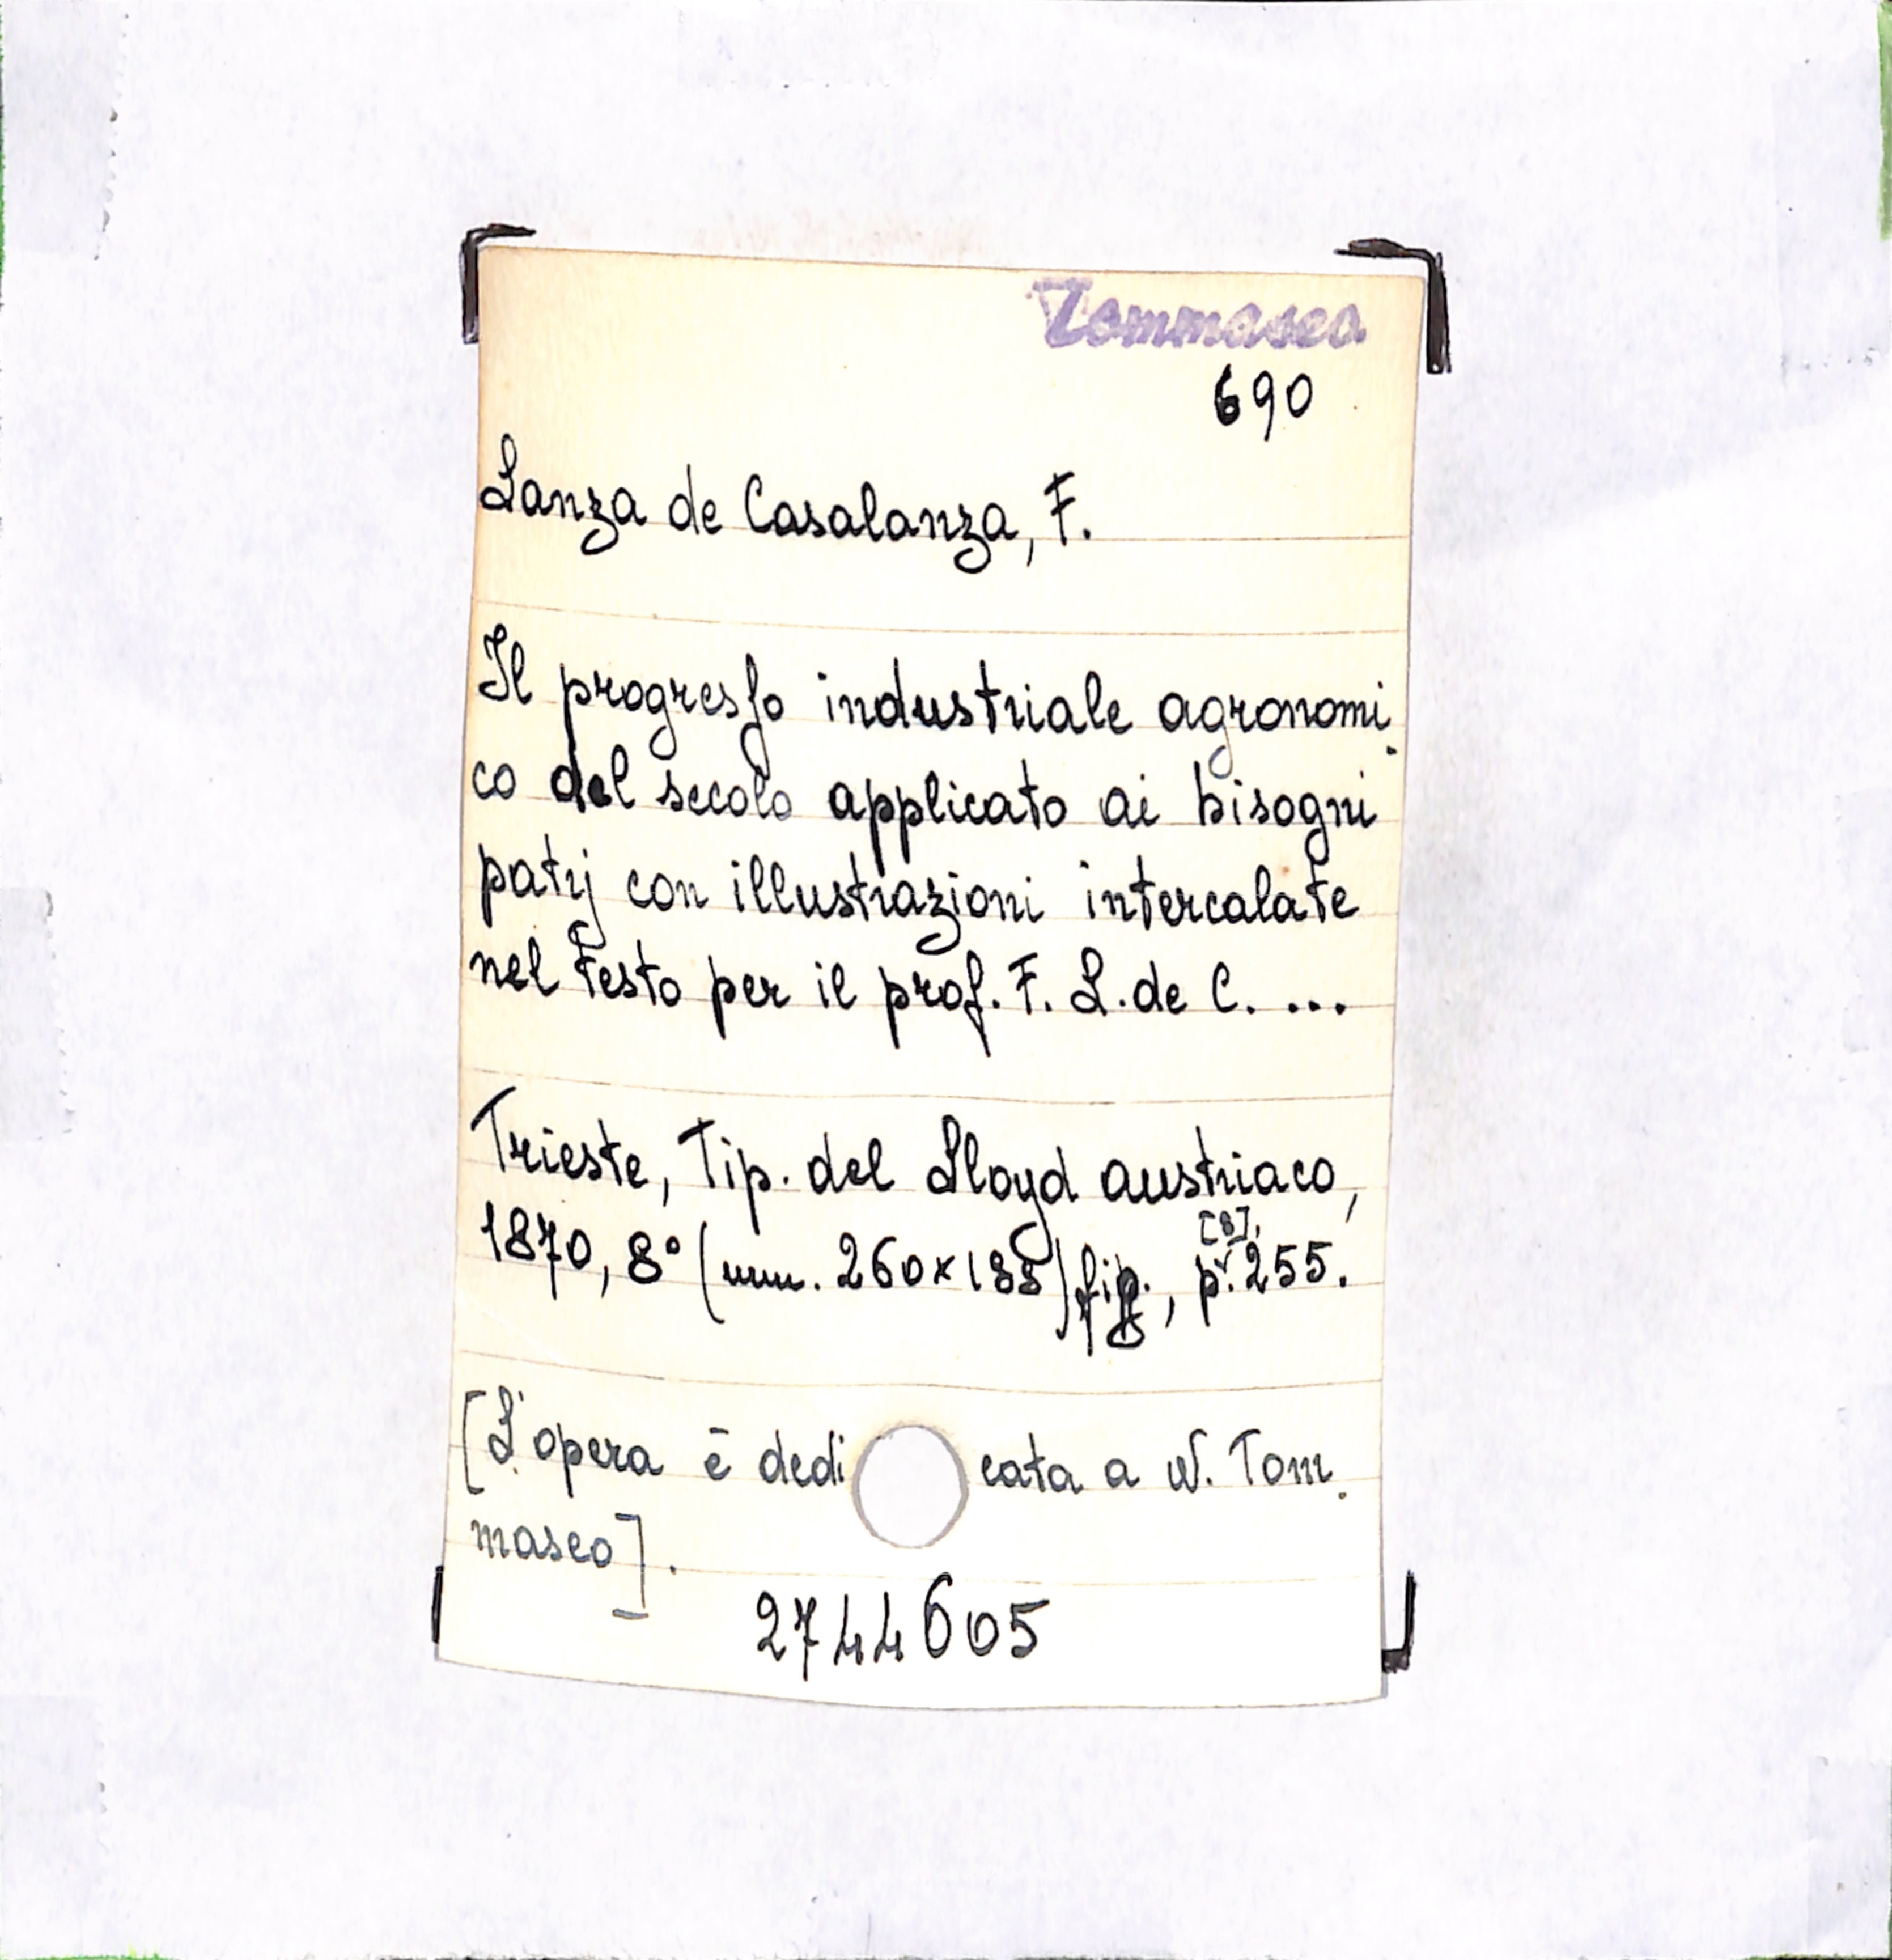 Tommaseo
690
Lanza de Casalanza, F.
Il progresſo industriale agronomi-
co del secolo applicato ai bisogni
patrj con illustrazioni intercalate
nel testo per il prof. F. L. de C. ...
Trieste, Tip. del Lloyd austriaco,
1870, 8° (mm. 260x188) fig., p. [8], 255.
[L'opera è dedicata a N. Tom-
maseo].
2744605